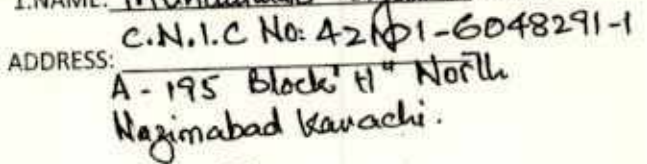 1.NAME:
C.N.I.C No: 42101-6048291-1
ADDRESS:
A-195 Block "H" North
Nazimabad Karachi.